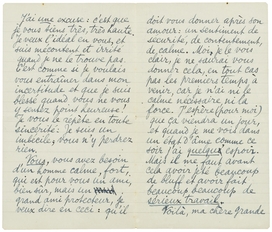 J'ai une excuse : c'est que
je vous vois très, très haute.
Je veux l'idéal en vous, et
suis mécontent et irrité
quand je ne le trouve pas.
C'est comme si je voulais
vous entraîner dans mon
incertitude et que je suis
blessé quand vous ne vous
y sentez point heureuse !
Je vous le répète en toute
sincérité : je suis un
imbécile, vous n'y perdrez
rien.
Vous, vous avez besoin
d'un homme calme, fort,
qui est pour vous un ami,
bien sûr, mais un
grand ami protecteur, je
veux dire en ceci : qu'il
doit vous donner après son
amour : un sentiment de
sécurité, de contentement,
de calme. Moi, je le vois
clair, je ne saurai vous
donner cela, en tout cas
pas les premiers temps à
venir, car je n'ai ni le
calme nécessaire ni la
force. J'espère (pour moi)
que ça viendra un jour,
et quand je me vois dans
un état d'âme comme ce
soir j'ai quelque espoir.
Mais il me faut avant
cela avoir été beaucoup
de bluff et avoir fait
beaucoup beaucoup de
sérieux travail.
Voilà, ma chère grande